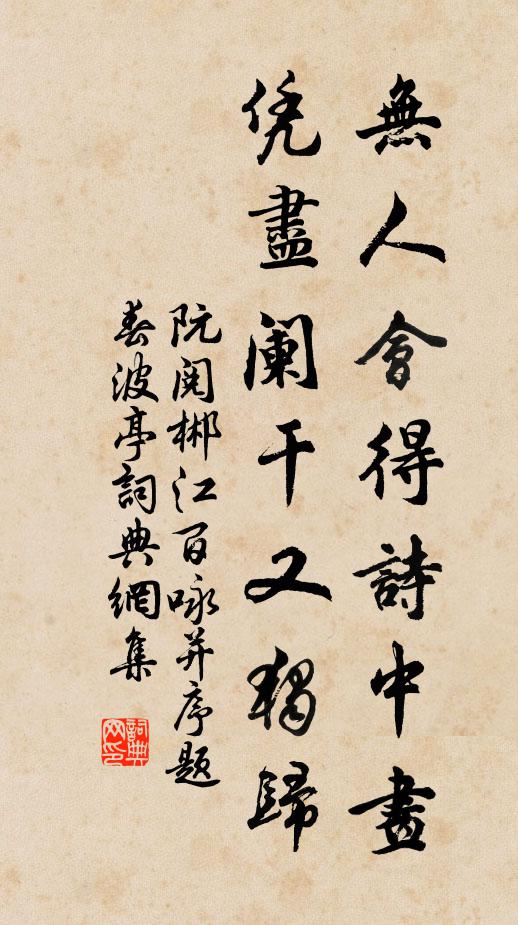 無人會得詩中畫
凭盡阑干又獨歸
阮閱郴江百咏并序題
春波亭詞典網集
詞典网印